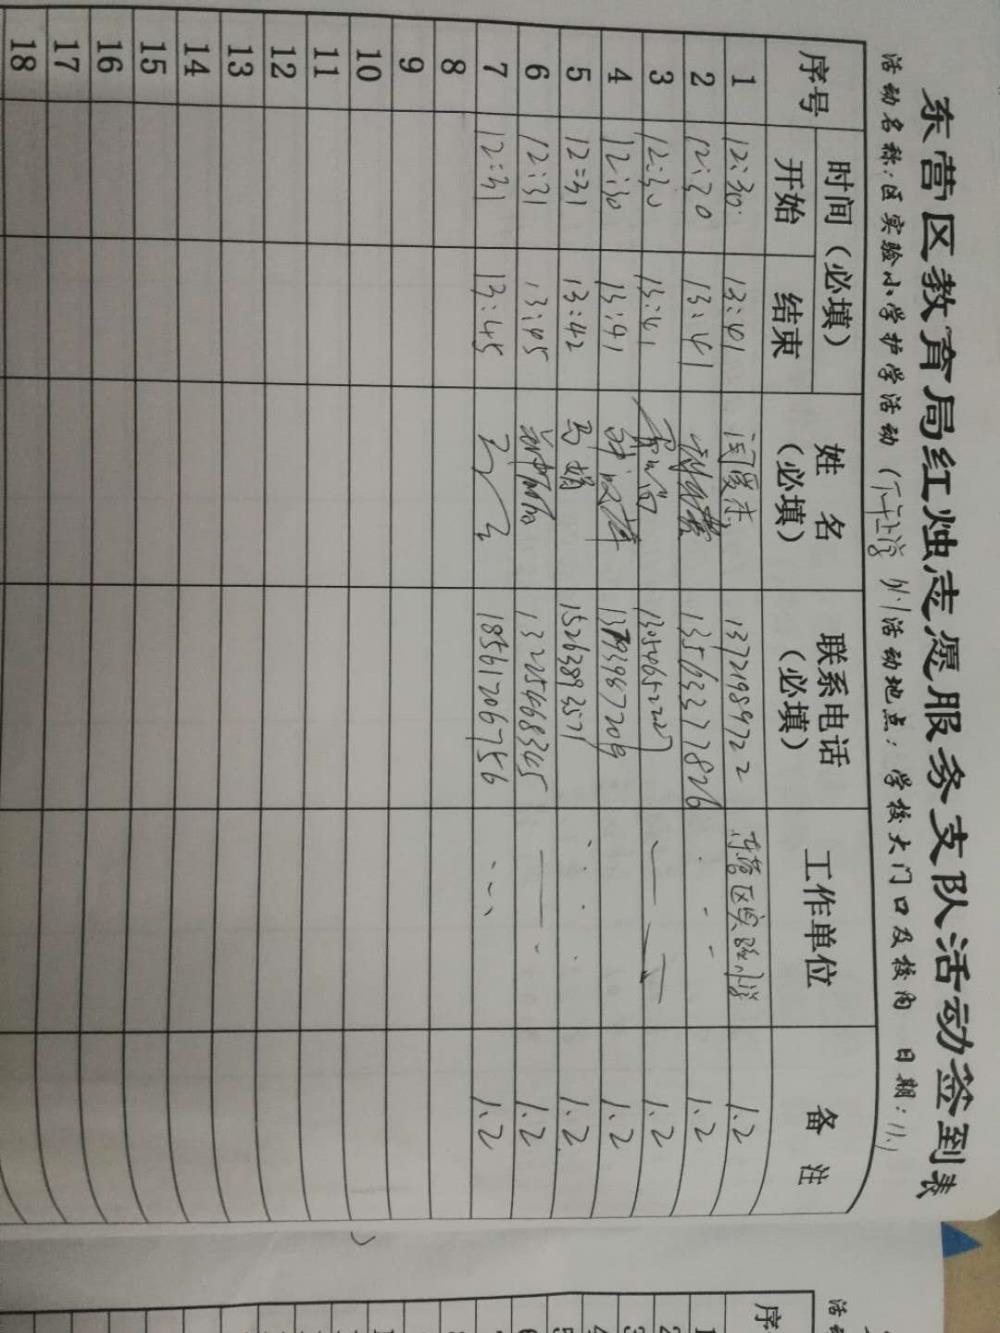 东营区教育局红烛志愿服务支队活动签到表
活动名称:区实验小学护学活动(下午上学) 活动地点:学校大门口及校内 日期:11.1
序号 时间(必填) 姓名(必填) 联系电话(必填) 工作单位 备注
开始 结束
1 12:30 13:41 闫爱杰 13721989722 东营区实验小学 1.2
2 12:30 13:41 13563377826 1.2
3 12:30 13:41 13054652227 1.2
4 12:30 13:41 13793967209 1.2
5 12:31 13:42 马娟 15263893571 1.2
6 12:31 13:45 13225468345 1.2
7 12:31 13:45 18561206756 1.2
8
9
10
11
12
13
14
15
16
17
18
活动
序